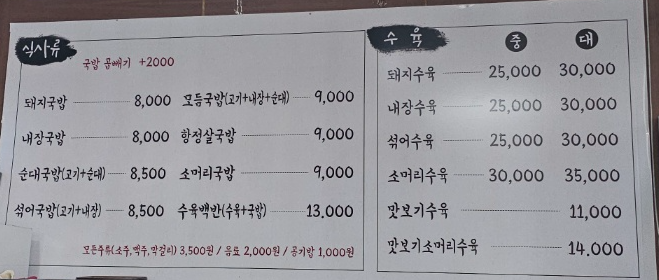 식사류
국밥 뚝빼기 +2000
돼지국밥 8,000 모듬국밥(고기+내장+순대) 9,000
내장국밥 8,000 항정살국밥 9,000
순대국밥(고기+순대) 8,500 소머리국밥 9,000
섞어국밥(고기+내장) 8,500 수육백반(수육+국밥) 13,000
모든주류(소주,맥주,막걸리) 3,500원 / 음료 2,000원 / 공기밥 1,000원
수육 중 대
돼지수육 25,000 30,000
내장수육 25,000 30,000
섞어수육 25,000 30,000
소머리수육 30,000 35,000
맛보기수육 11,000
맛보기소머리수육 14,000